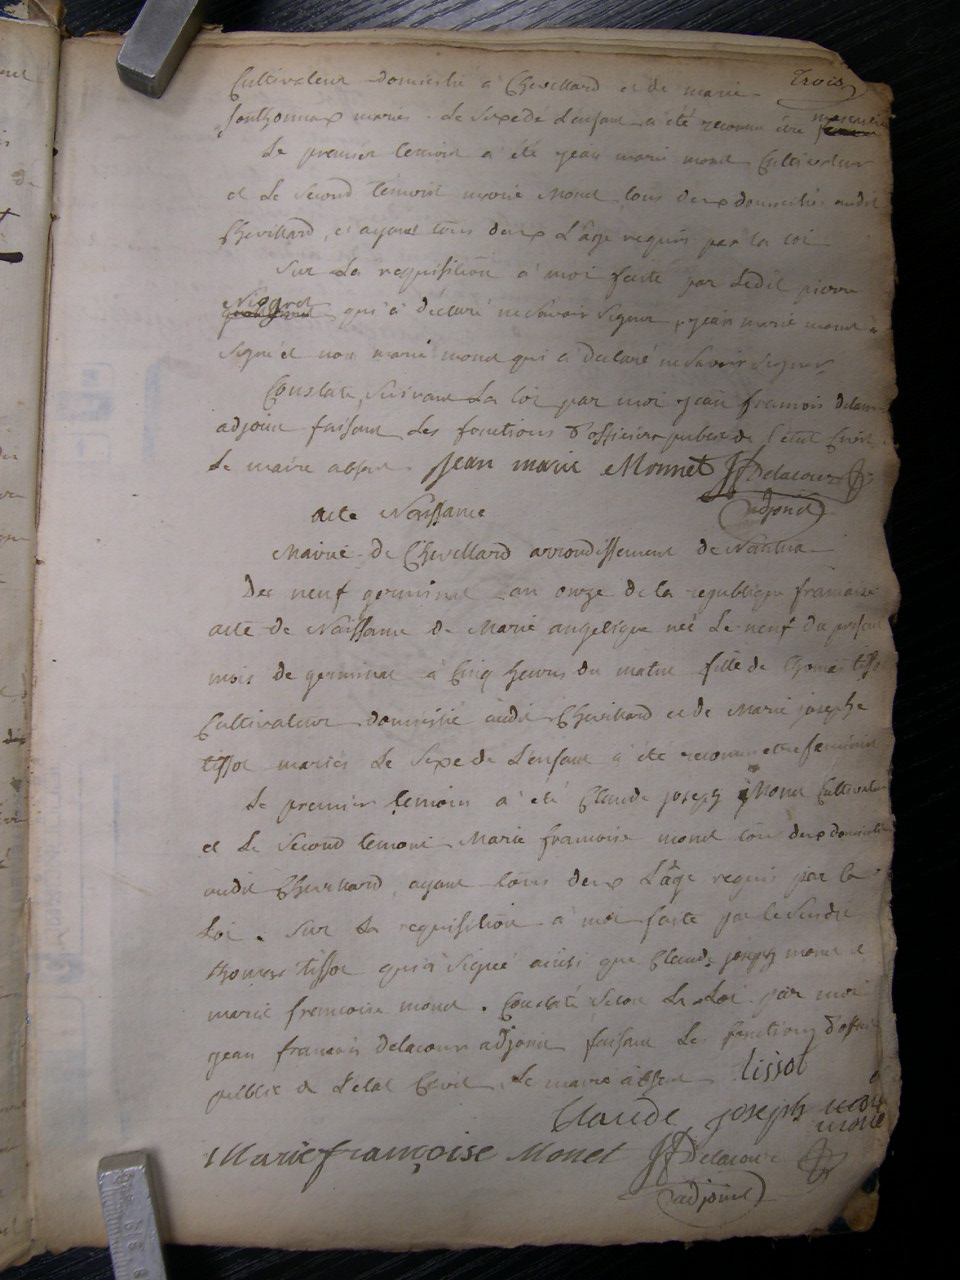 Trois
Cultivateur domicilié à Chevillard et de marie
Jonthonnax mariés. Le Sexe de L'enfant a été reconnu être masculin
Le premier temoin a été jean marie monet Cultivateur
et Le Second temoin marie Monet tous deux domiciliés audit
Chevillard, et ayant tous deux L'âge requis par la loi
Sur La requisition à moi faite par Ledit pierre
Niogret qui a déclaré ne Savoir Signer, jean marie monet a
Signé et non marie monet qui a declaré ne Savoir Signer
Constaté Suivant La loi par moi jean francois delacour
adjoint faisant Les fonctions d'officier public de l'état Civil.
Le maire absent. Jean marie Monnet JfDelacour
adjoint
acte Naissance
Mairie de Chevillard arrondissement de Nantua
Du neuf germinal an onze de la republique francaise
acte de Naissance de Marie angelique née Le neuf du présent
mois de germinal à Cinq heures du matin fille de thomas tissot
Cultivateur domicilié audit Chevillard et de Marie josephe
tissot mariés Le Sexe de L'enfant a été reconnu etre feminin
Le premier temoin a été Claude joseph Monet Cultivateur
et Le Second temoin Marie francoise monet tous deux domiciliés
audit Chevillard ayant tous deux L'âge requis par la
Loi. Sur La requisition à moi faite par le Susdit
thomas tissot qui a Signé ainsi que Claude joseph monet et
marie francoise monet. Constaté Selon La Loi par moi
jean francois delacour adjoint faisant Les fonctions d'officier
public de L'état Civil. Le maire absent tissot
Claude joseph monet
Marie françoise Monet JfDelacour
adjoint